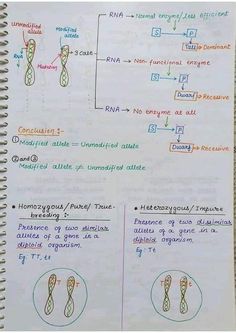 Unmodified allele
Modified allele
RNA
Mutation
3 Case
RNA → Normal enzyme/less efficient
S → P
Tall → Dominant
RNA → Non-functional enzyme
S → P
Dwarf → Recessive
RNA → No enzyme at all
S → P
Dwarf → Recessive
Conclusion :-
① Modified allele = Unmodified allele
② and ③
Modified allele ≠ Unmodified allele
• Homozygous/Pure/True-
breeding :-
Presence of two similar
alleles of a gene in a
diploid organism.
Eg: TT, tt
T T
• Heterozygous/Impure
Presence of two dissimilar
alleles of a gene in a
diploid organism.
Eg: Tt
T t